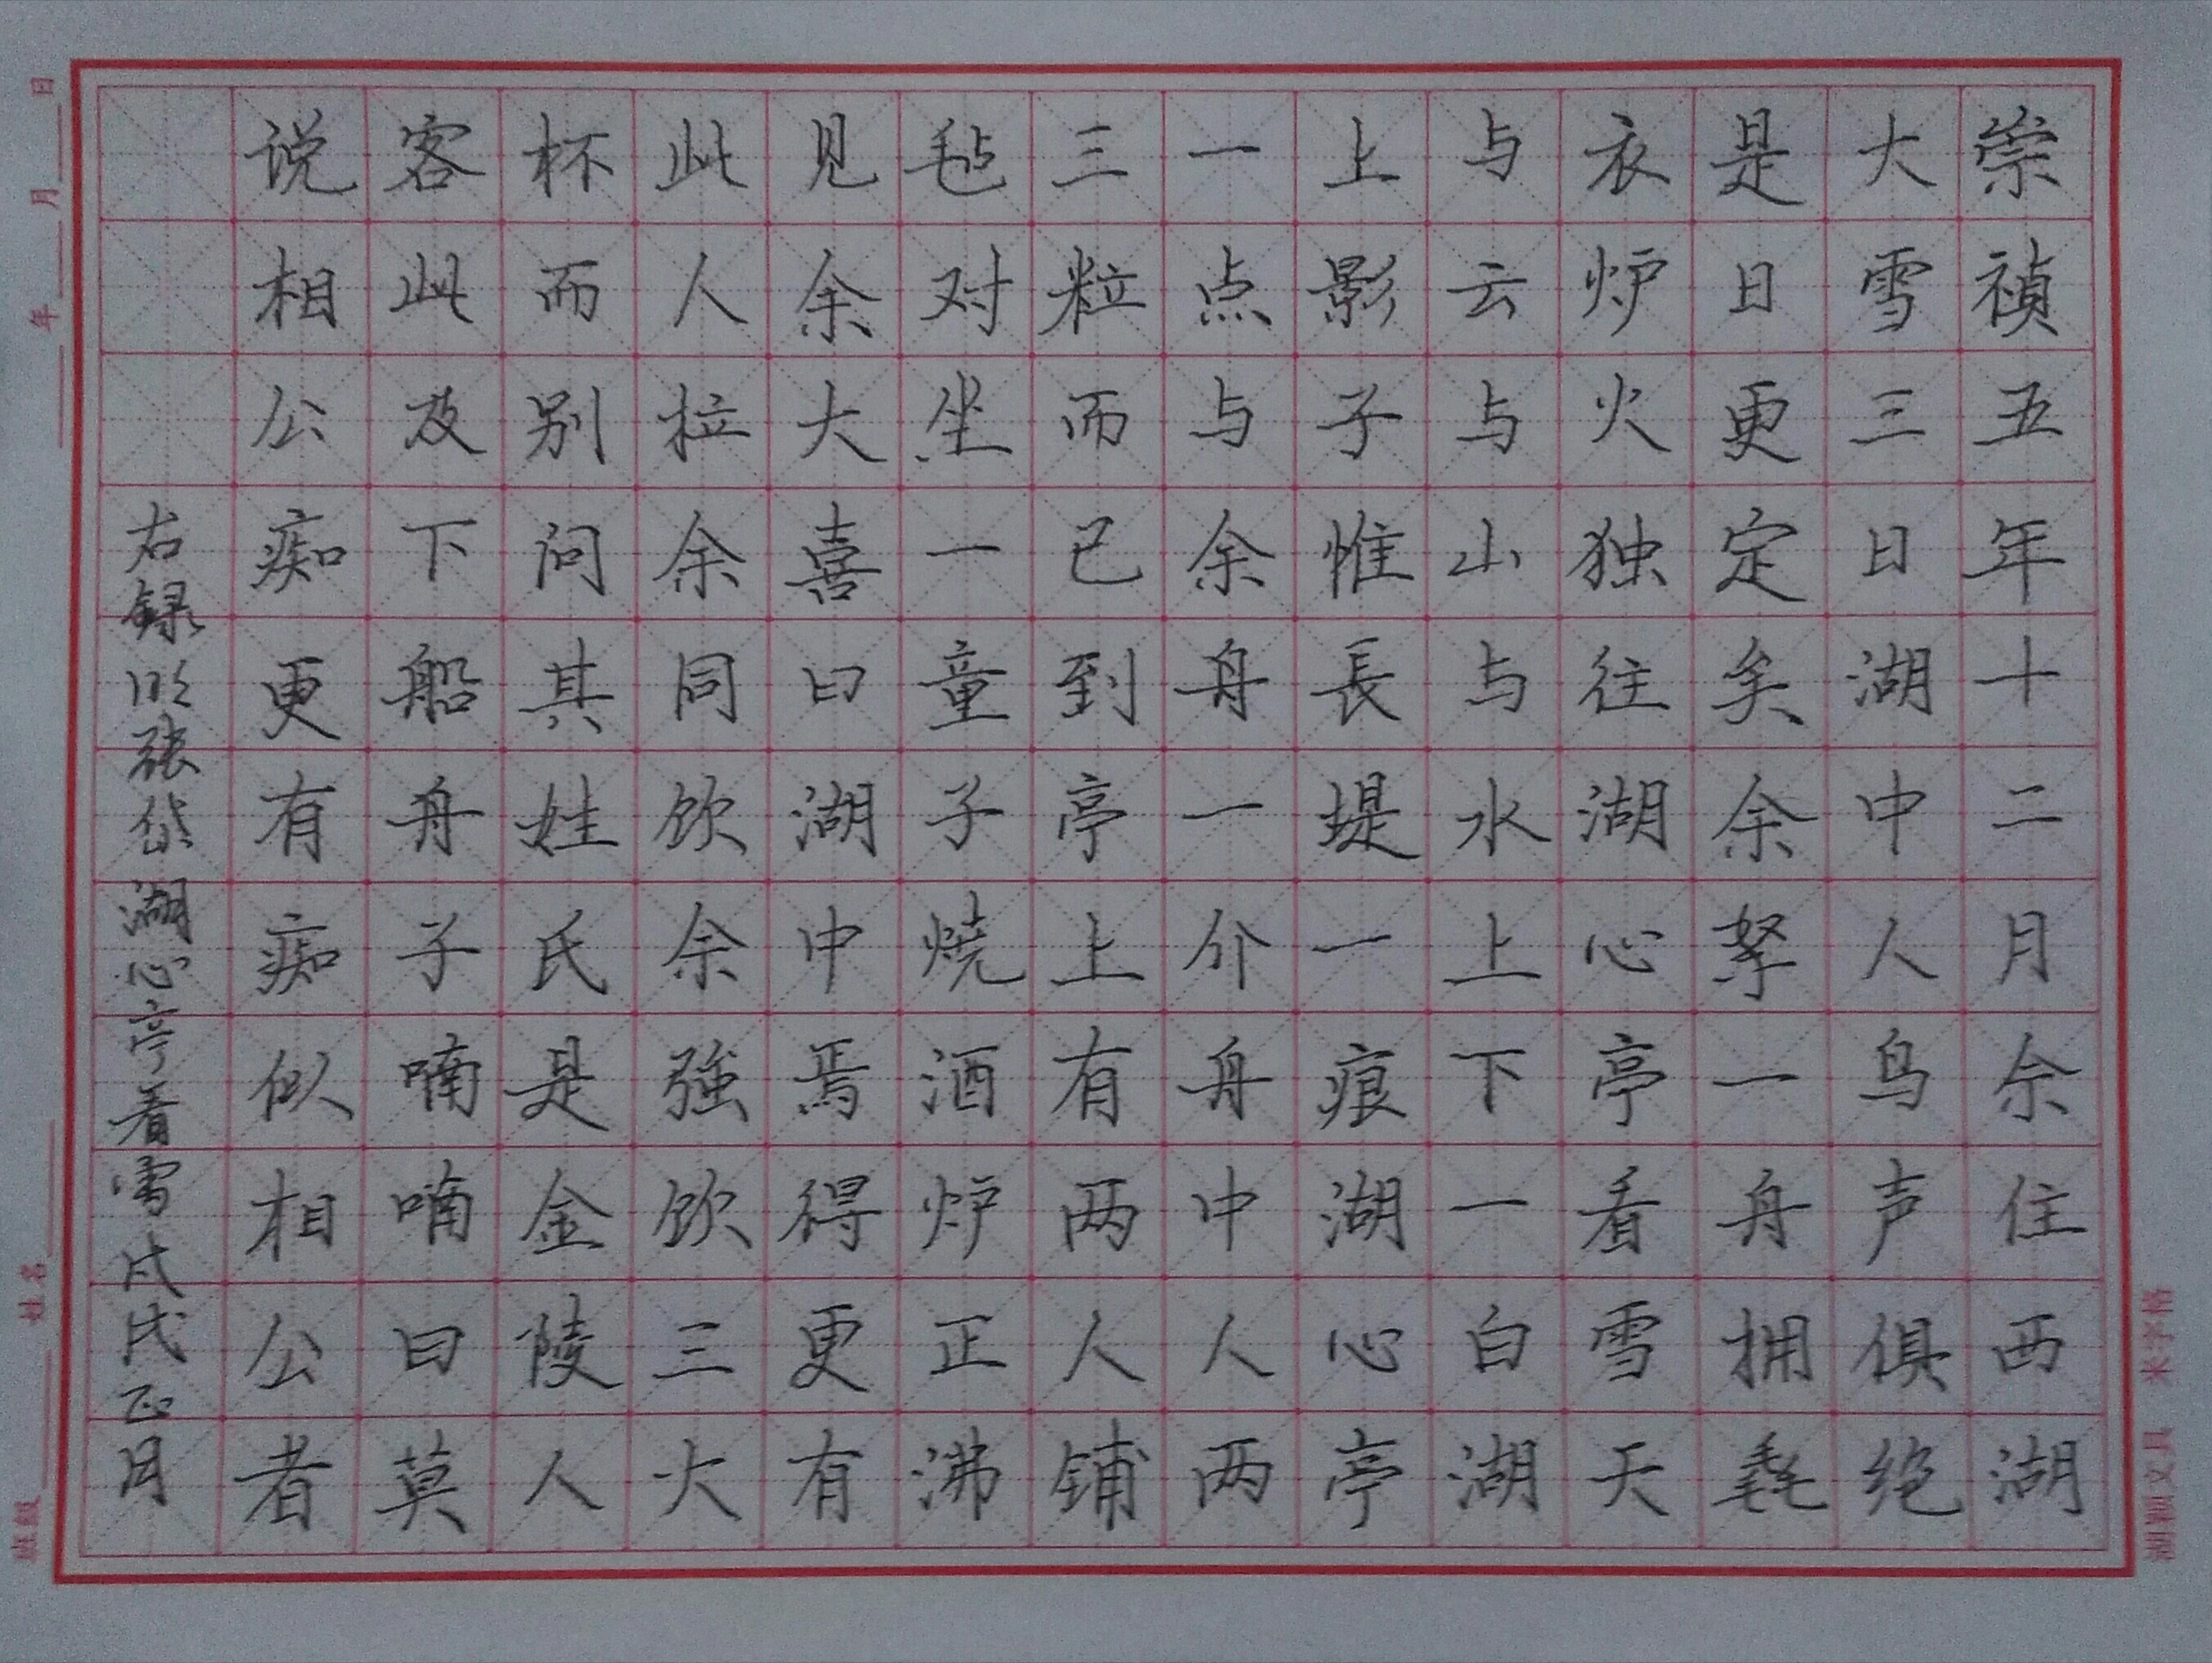 崇禎五年十二月余住西湖
大雪三日湖中人鸟声俱绝
是日更定矣余拏一舟拥毳
衣炉火独往湖心亭看雪天
与云与山与水上下一白湖
上影子惟長堤一痕湖心亭
一点与余舟一介舟中人两
三粒而已到亭上有两人铺
毡对坐一童子烧酒炉正沸
见余大喜曰湖中焉得更有
此人拉余同饮余強饮三大
杯而别问其姓氏是金陵人
客此及下船舟子喃喃曰莫
说相公痴更有痴似相公者
右録明张岱湖心亭看雪戊戌正月
班级 姓名 年 月 日
文具 米字格